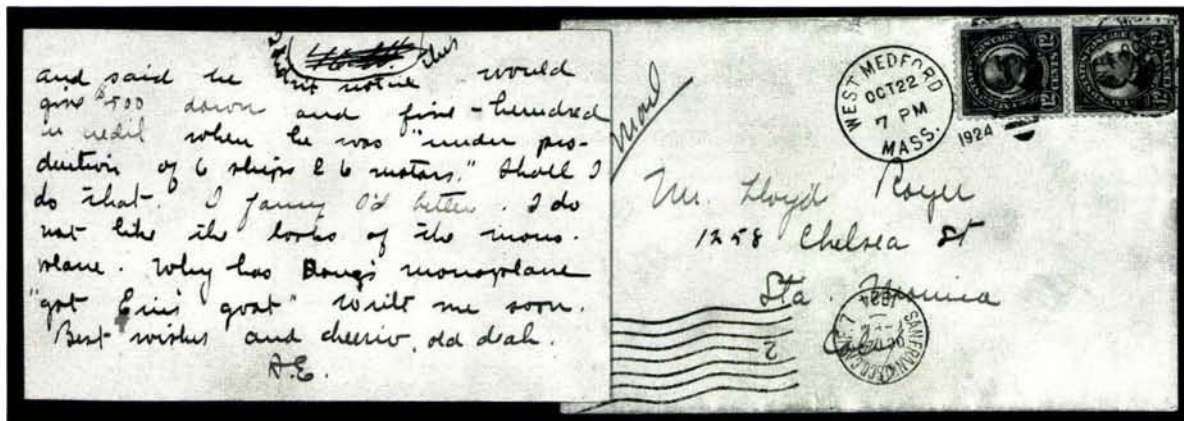 and said he would
give $500 down and five-hundred
in credit when he was "under pro-
duction of 6 ships & 6 motors." Shall I
do that. I fancy I'd better. I do
not like the looks of the mono-
plane. Why has Doug's monoplane
"got Eric's goat" Write me soon.
Best wishes and cheerio, old deah.
A.E.
WEST MEDFORD
OCT 22
7 PM
MASS.
1924
POSTAGE
12 CENTS 12
POSTAGE
12 CENTS 12
Mr. Lloyd Royer
1258 Chelsea St
Sta. Monica
SAN FRANCISCO, CAL.
1924
2